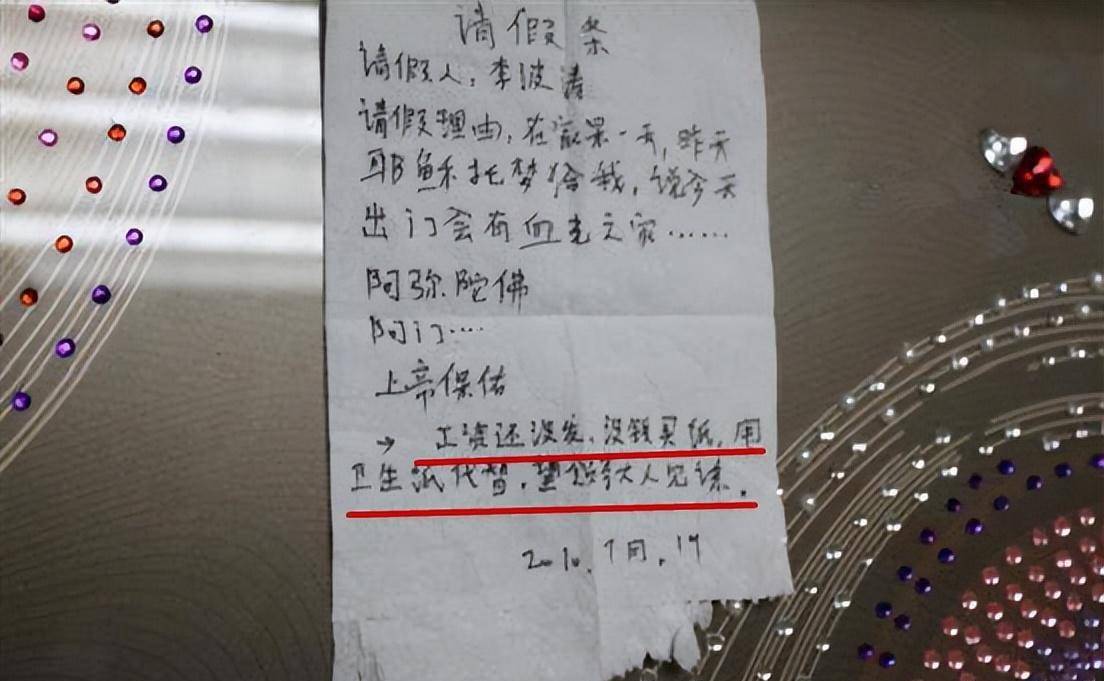 请假条
请假人:李波涛
请假理由:在家呆一天,昨天
耶稣托梦给我,说今天
出门会有血光之灾……
阿弥陀佛
阿门……
上帝保佑
→ 工资还没发,没钱买纸,用
卫生纸代替,望领导大人见谅.
2010.